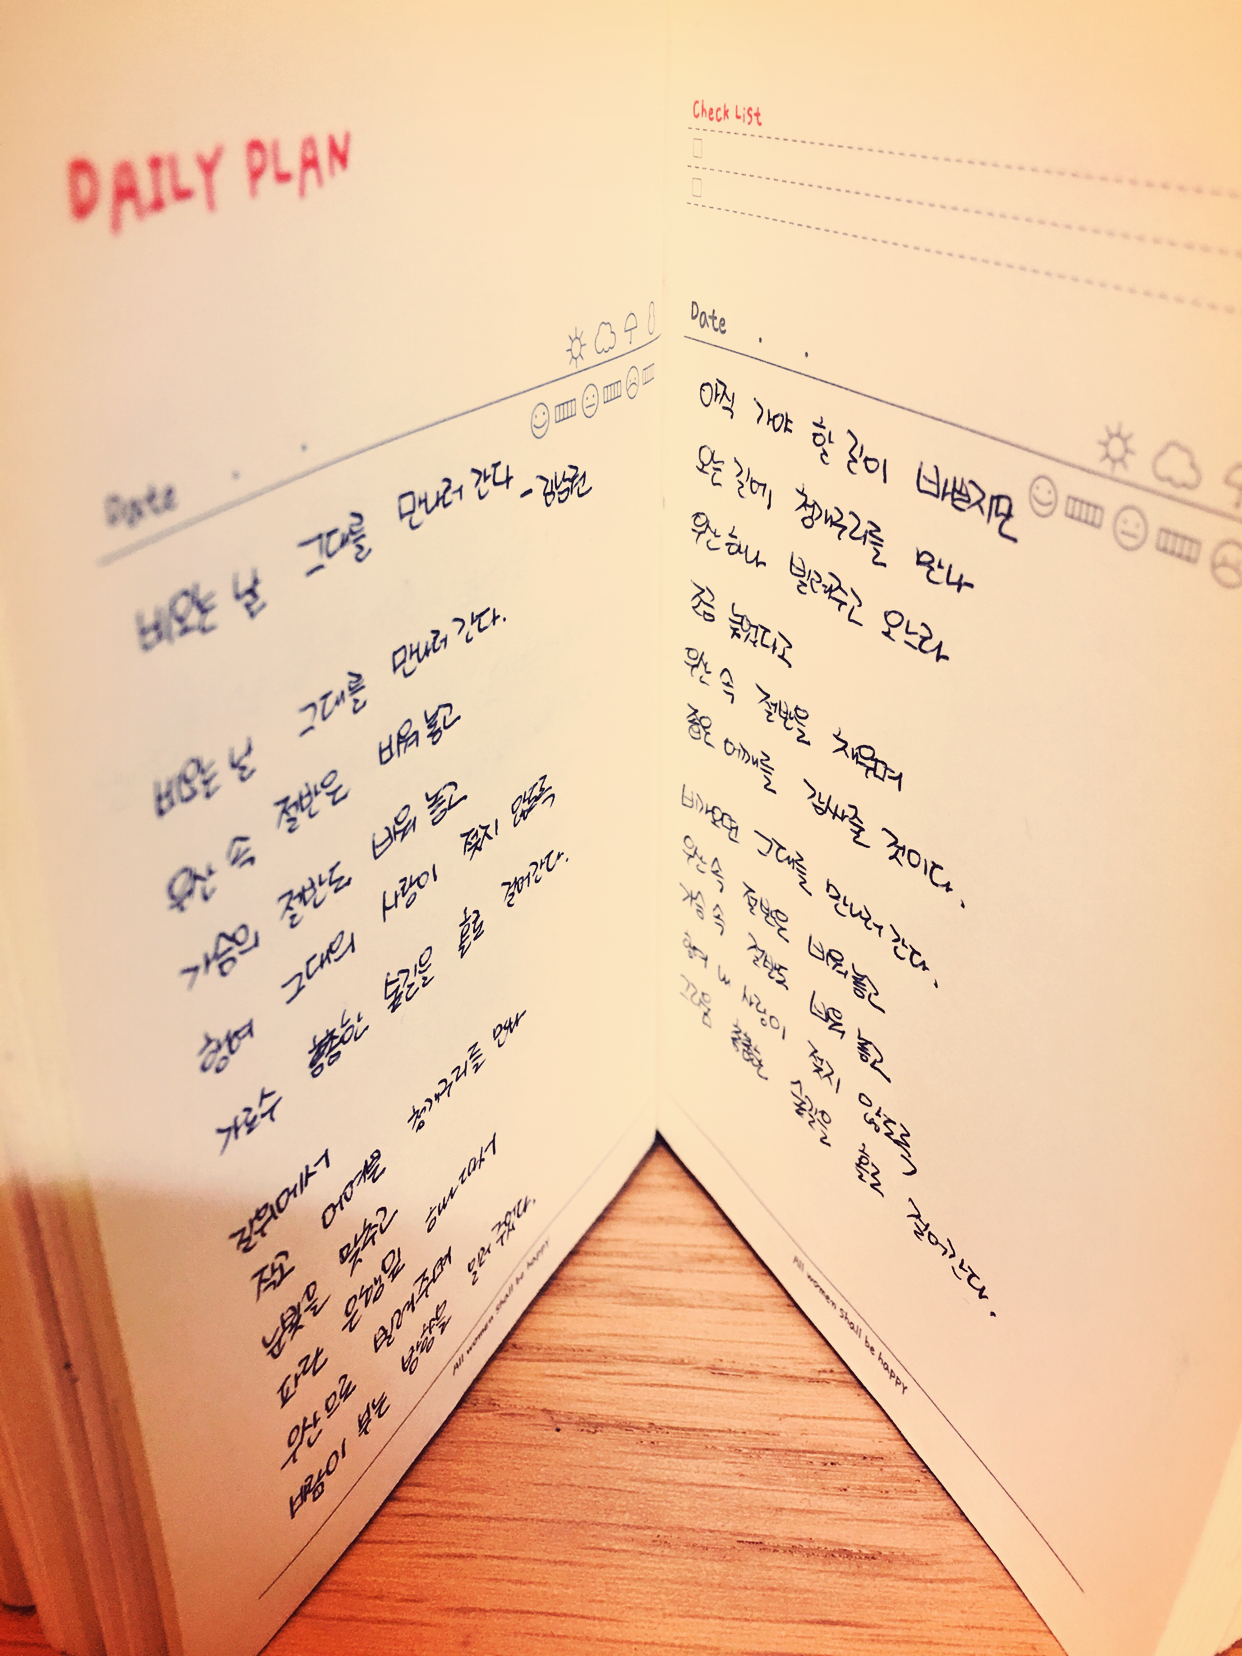 DAILY PLAN
Date . .
비오는 날 그대를 만나러 간다 -
비오는 날 그대를 만나러 간다.
우산 속 절반은 비워 놓고
가슴의 절반도 비워 놓고
행여 그대의 사랑이 젖지 않도록
가로수 숲길을 홀로 걸어간다.
길위에서 청개구리를 만나
작고 어여쁜
눈빛을 맞추고
파란 은행잎 하나 따서
우산으로 빌려주며
바람이 부는 방향을 일러 주었다.
All women shall be happy
Check List
Date . .
아직 가야 할 길이 바쁜지만
오는 길에 청개구리를 만나
우산 하나 빌려주고 오느라
조금 늦었다고
우산 속 절반을 채우며
젖은 어깨를 감싸줄 것이다.
비가오면 그대를 만나러 간다.
우산 속 절반은 비워 놓고
가슴 속 절반도 비워 놓고
행여 내 사랑이 젖지 않도록
그리움 숲길을 홀로 걸어간다.
All women shall be happy